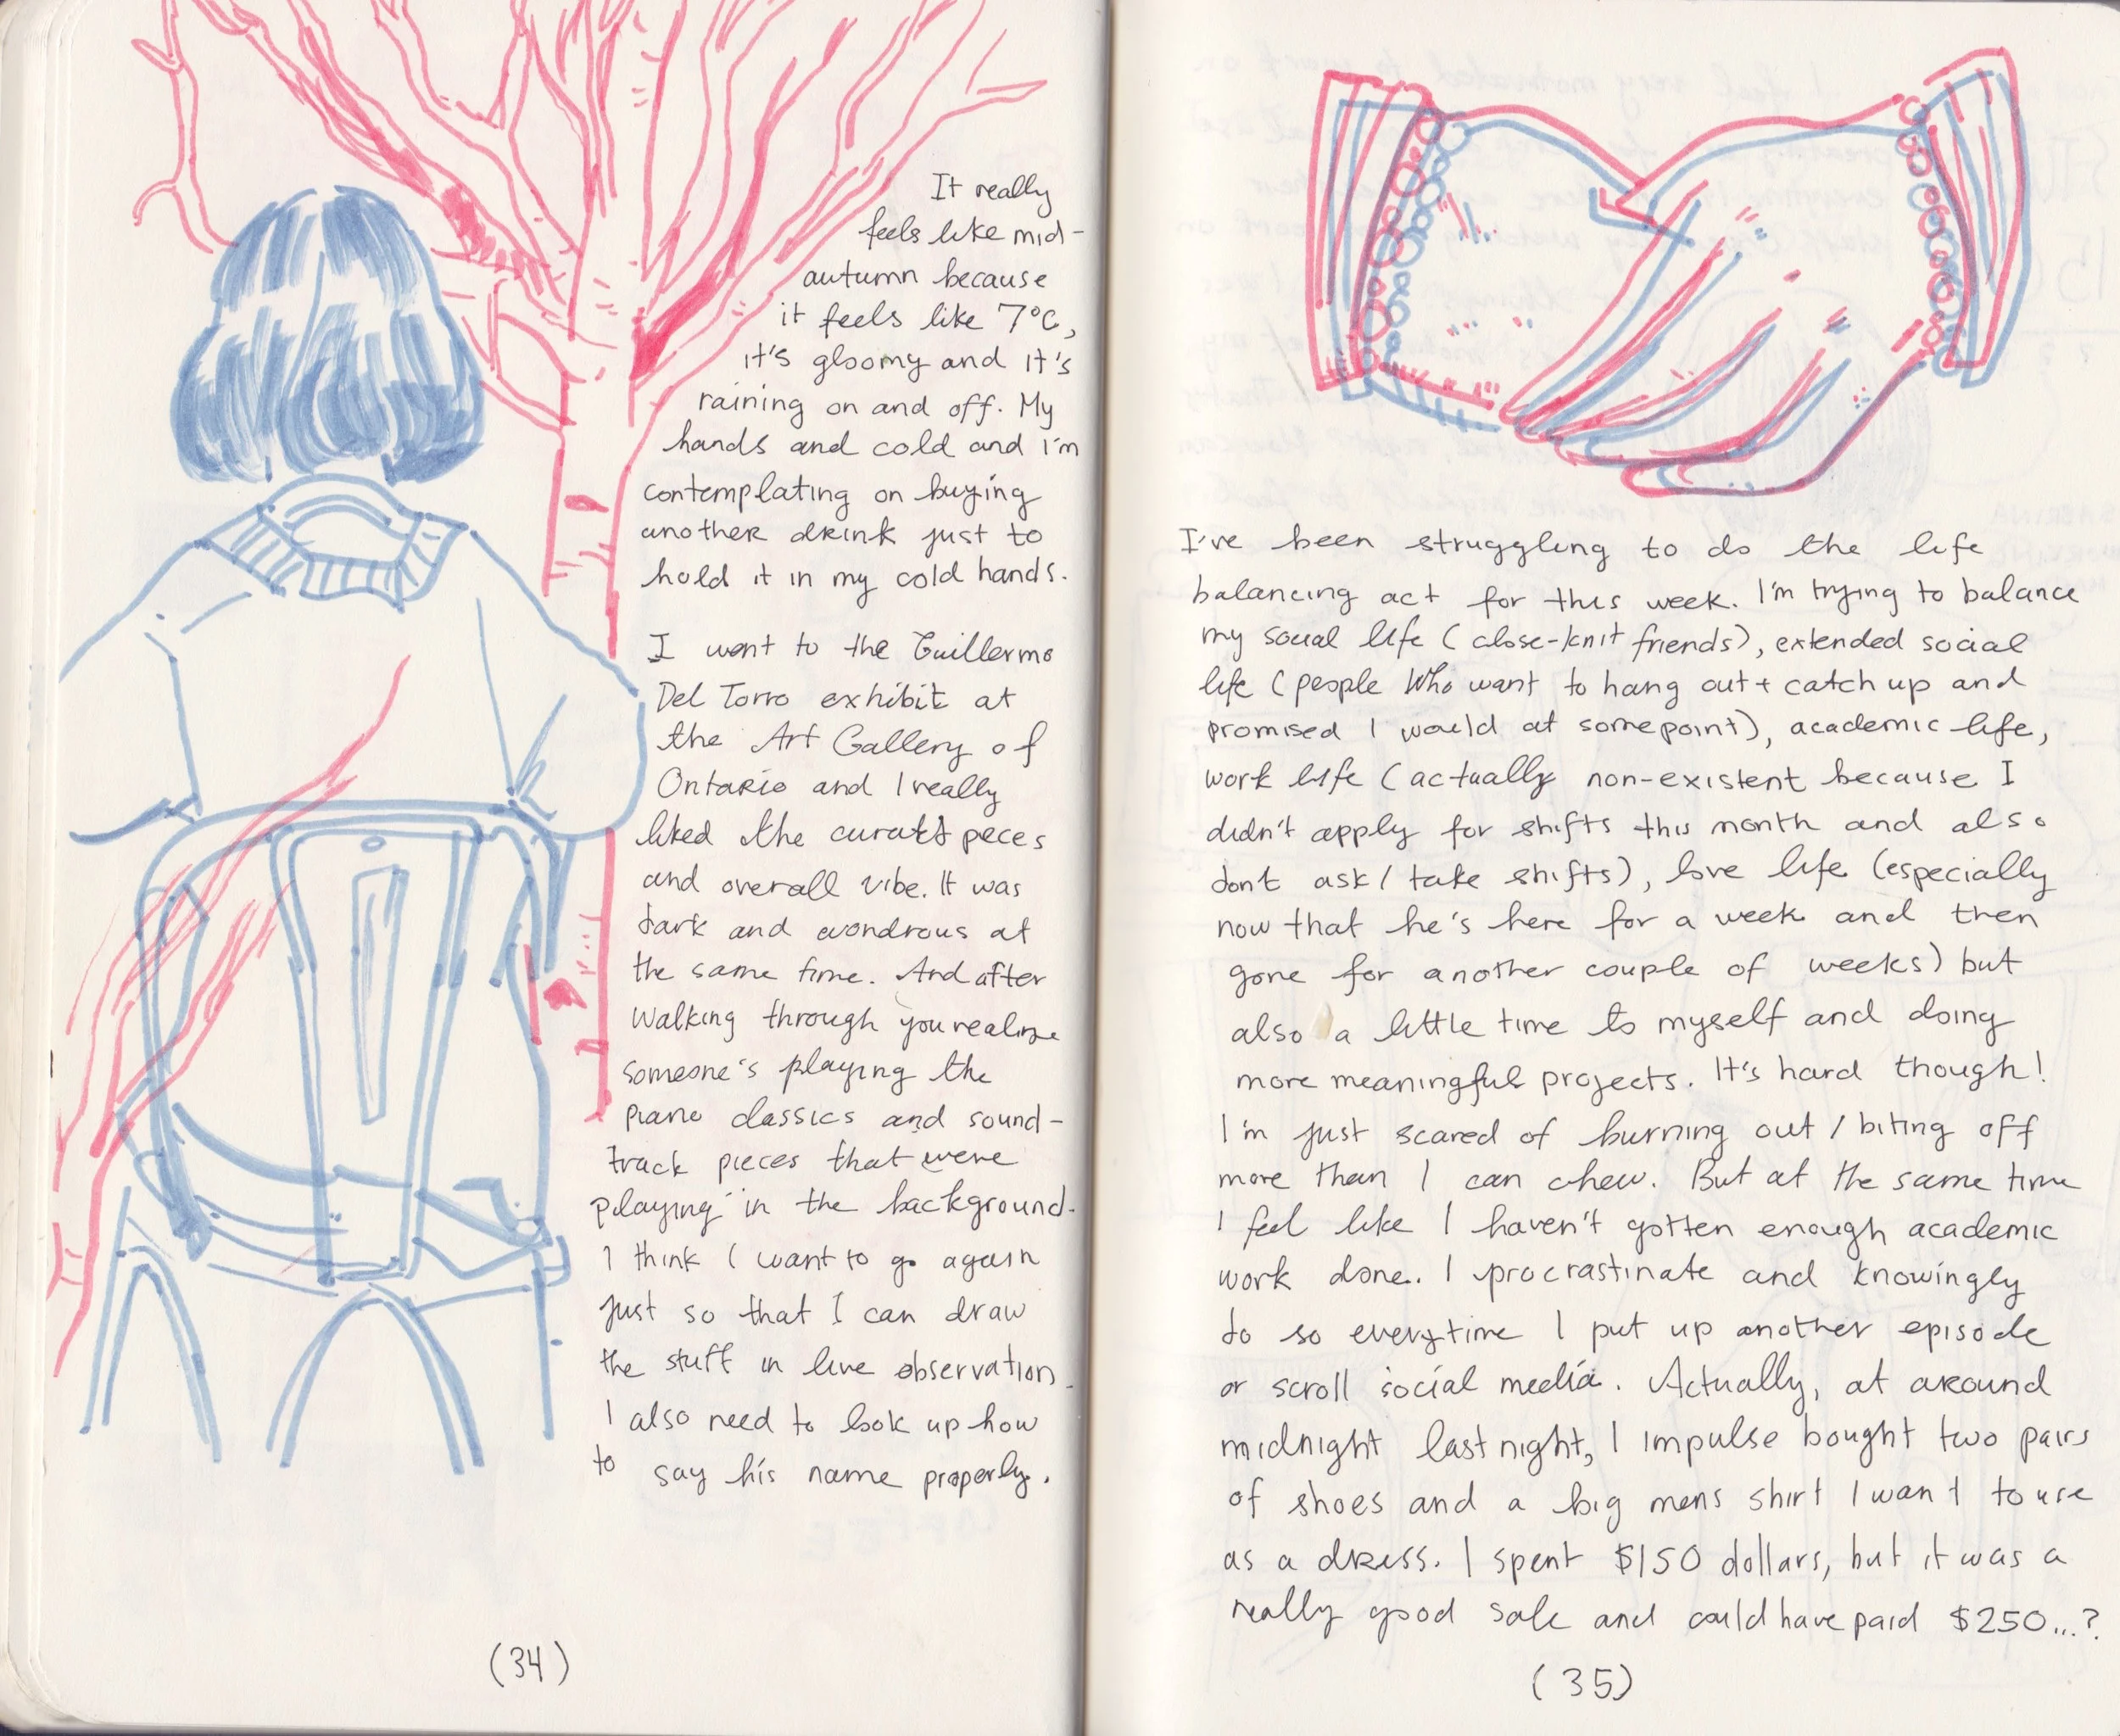 It really
feels like mid-
autumn because
it feels like 7°C,
it's gloomy and it's
raining on and off. My
hands and cold and I'm
contemplating on buying
another drink just to
hold it in my cold hands.
I went to the Guillermo
Del Torro exhibit at
the Art Gallery of
Ontario and I really
liked the peces
and overall vibe. It was
dark and wondrous at
the same time. And after
walking through you realize
someone's playing the
piano classics and sound-
track pieces that were
playing in the background.
I think I want to go again
just so that I can draw
the stuff in live observation.
I also need to look up how
to say his name properly.
(34)
I've been struggling to do the life
balancing act for this week. I'm trying to balance
my social life (close-knit friends), extended social
life (people who want to hang out + catch up and
promised I would at some point), academic life,
work life (actually non-existent because I
didn't apply for shifts this month and also
dont ask/take shifts), love life (especially
now that he's here for a week and then
gone for another couple of weeks) but
also a little time to myself and doing
more meaningful projects. It's hard though!
I'm just scared of burning out / biting off
more than I can chew. But at the same time
I feel like I haven't gotten enough academic
work done. I procrastinate and knowingly
do so everytime I put up another episode
or scroll social media. Actually, at around
midnight last night, I impulse bought two pairs
of shoes and a big mens shirt I want to use
as a dress. I spent $150 dollars, but it was a
really good sale and could have paid $250...?
(35)